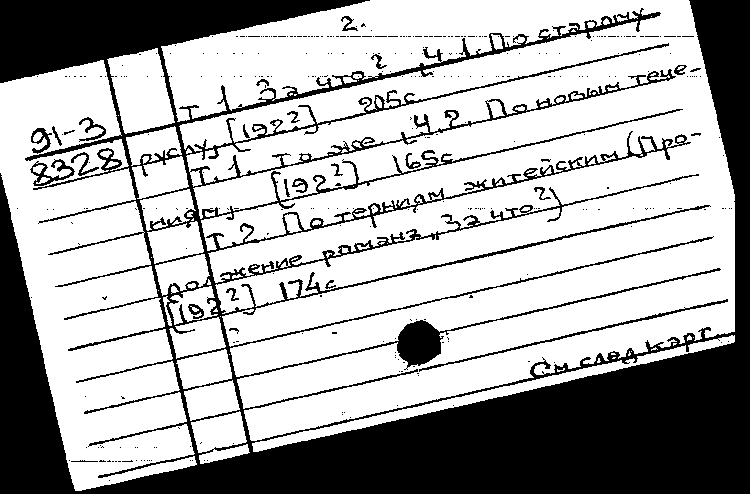 2.
91-3
8328
Т. 1. За что? [Ч. 1. По старому
руслу] [192?]. 205с
Т. 1. То же. [Ч. 2. По новым тече-
ниям] [192?]. 165с
Т. 2. По терниям житейским (Про-
должение романа „За что?)
[192?]. 174с
См след карт.